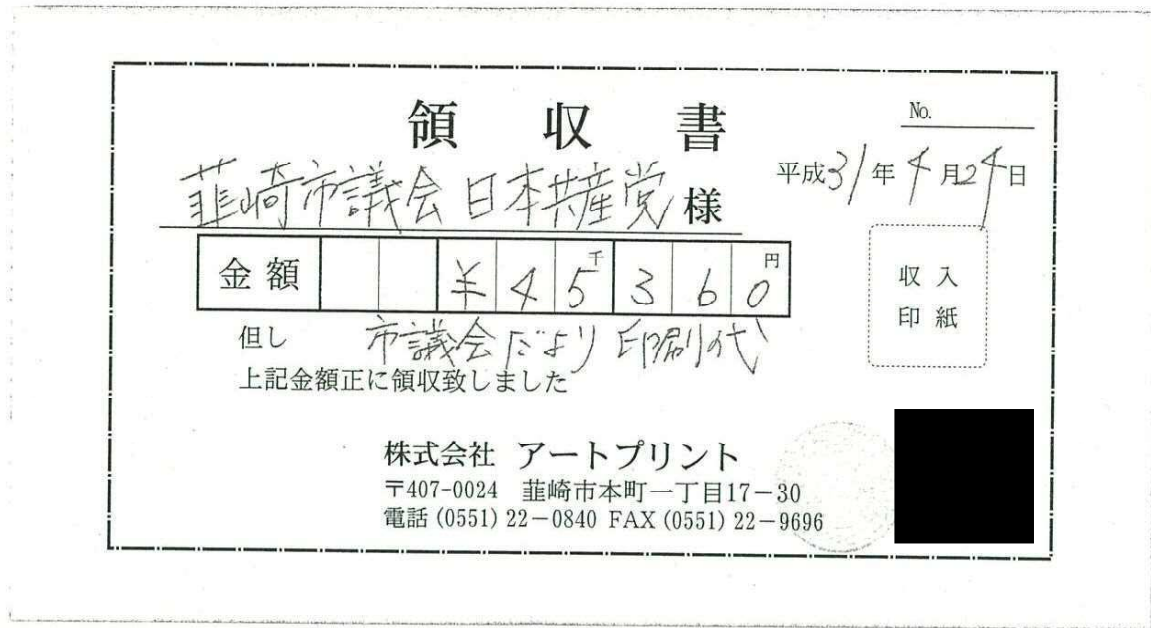 領収書
No.
平成31年4月24日
韮崎市議会 日本共産党 様
金額 ¥45千360円
収入
印紙
但し 市議会だより 印刷代
上記金額正に領収致しました
株式会社 アートプリント
〒407-0024 韮崎市本町一丁目17-30
電話(0551)22-0840 FAX(0551)22-9696